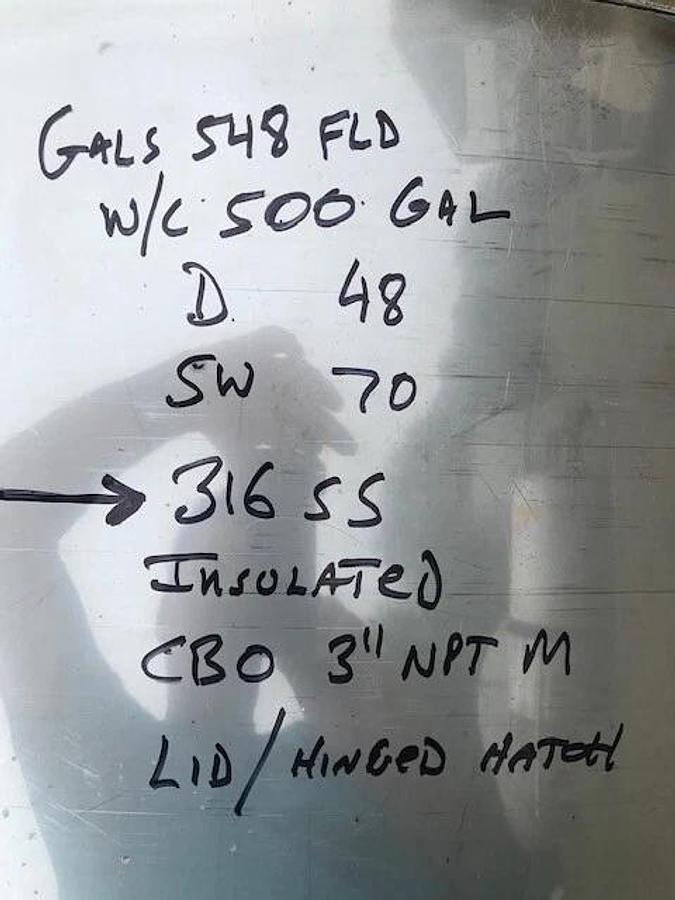 GALS 548 FLD
W/C 500 GAL
D. 48
SW 70
→ 316 SS
INSULATED
CBO 3" NPT M
LID/HINGED HATCH